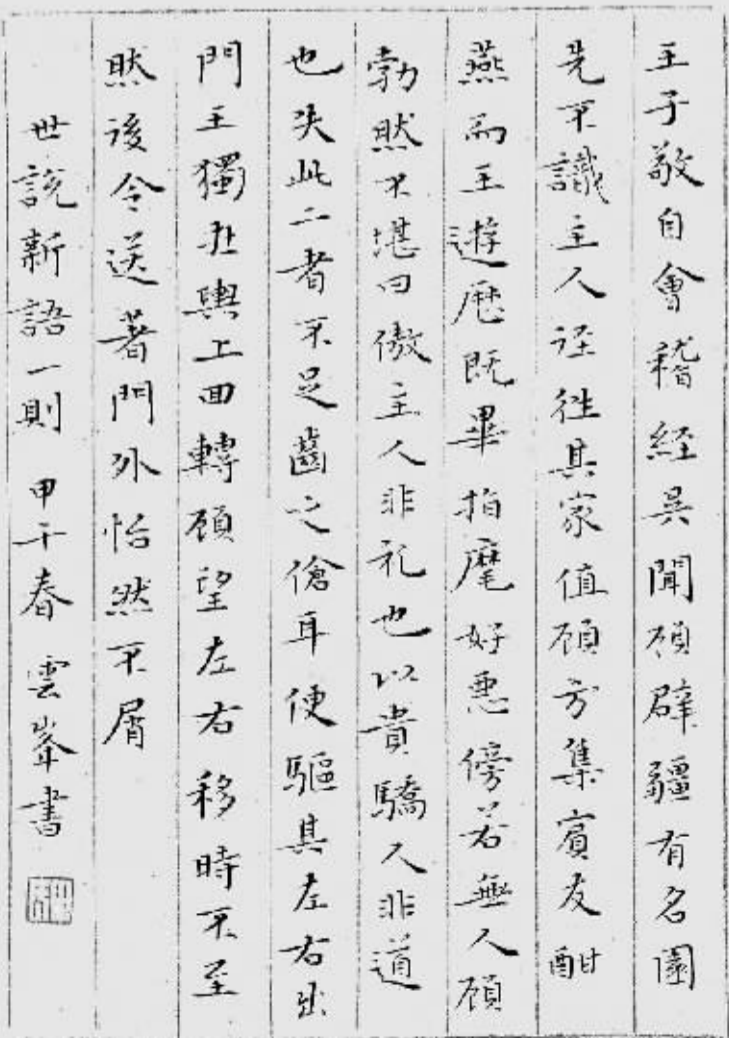 王子敬自會稽經吳聞顧辟疆有名園
先不識主人逕往其家值顧方集賓友酣
燕而王遊歷既畢指麾好惡傍若無人顧
勃然不堪曰傲主人非礼也以貴驕人非道
也失此二者不足齒之傖耳便驅其左右出
門王獨在輿上回轉顧望左右移時不至
然後令送著門外怡然不屑
世說新語一則 甲午春 雲峯書